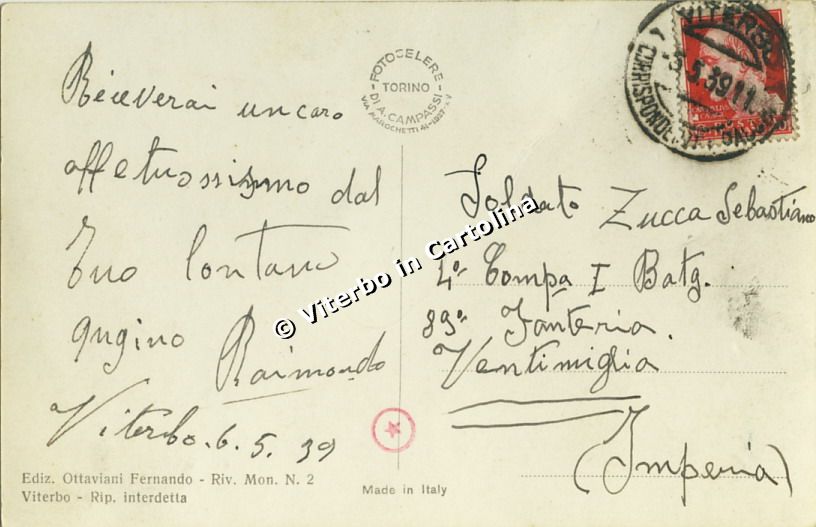 Riceverai un caro
affettuossissimo dal
tuo lontano
qugino Raimondo
Viterbo. 6. 5. 39
Ediz. Ottaviani Fernando - Riv. Mon. N. 2
Viterbo - Rip. interdetta
FOTOCELERE
TORINO
DI A. CAMPASSI
VIA MAROCHETTI 41-1937-XV
© Viterbo in Cartolina
Made in Italy
VITERBO
5.39.11
Soldato Zucca Sebastiano
4ª Compa I Batg.
89º Fanteria.
Ventimiglia
(Imperia)